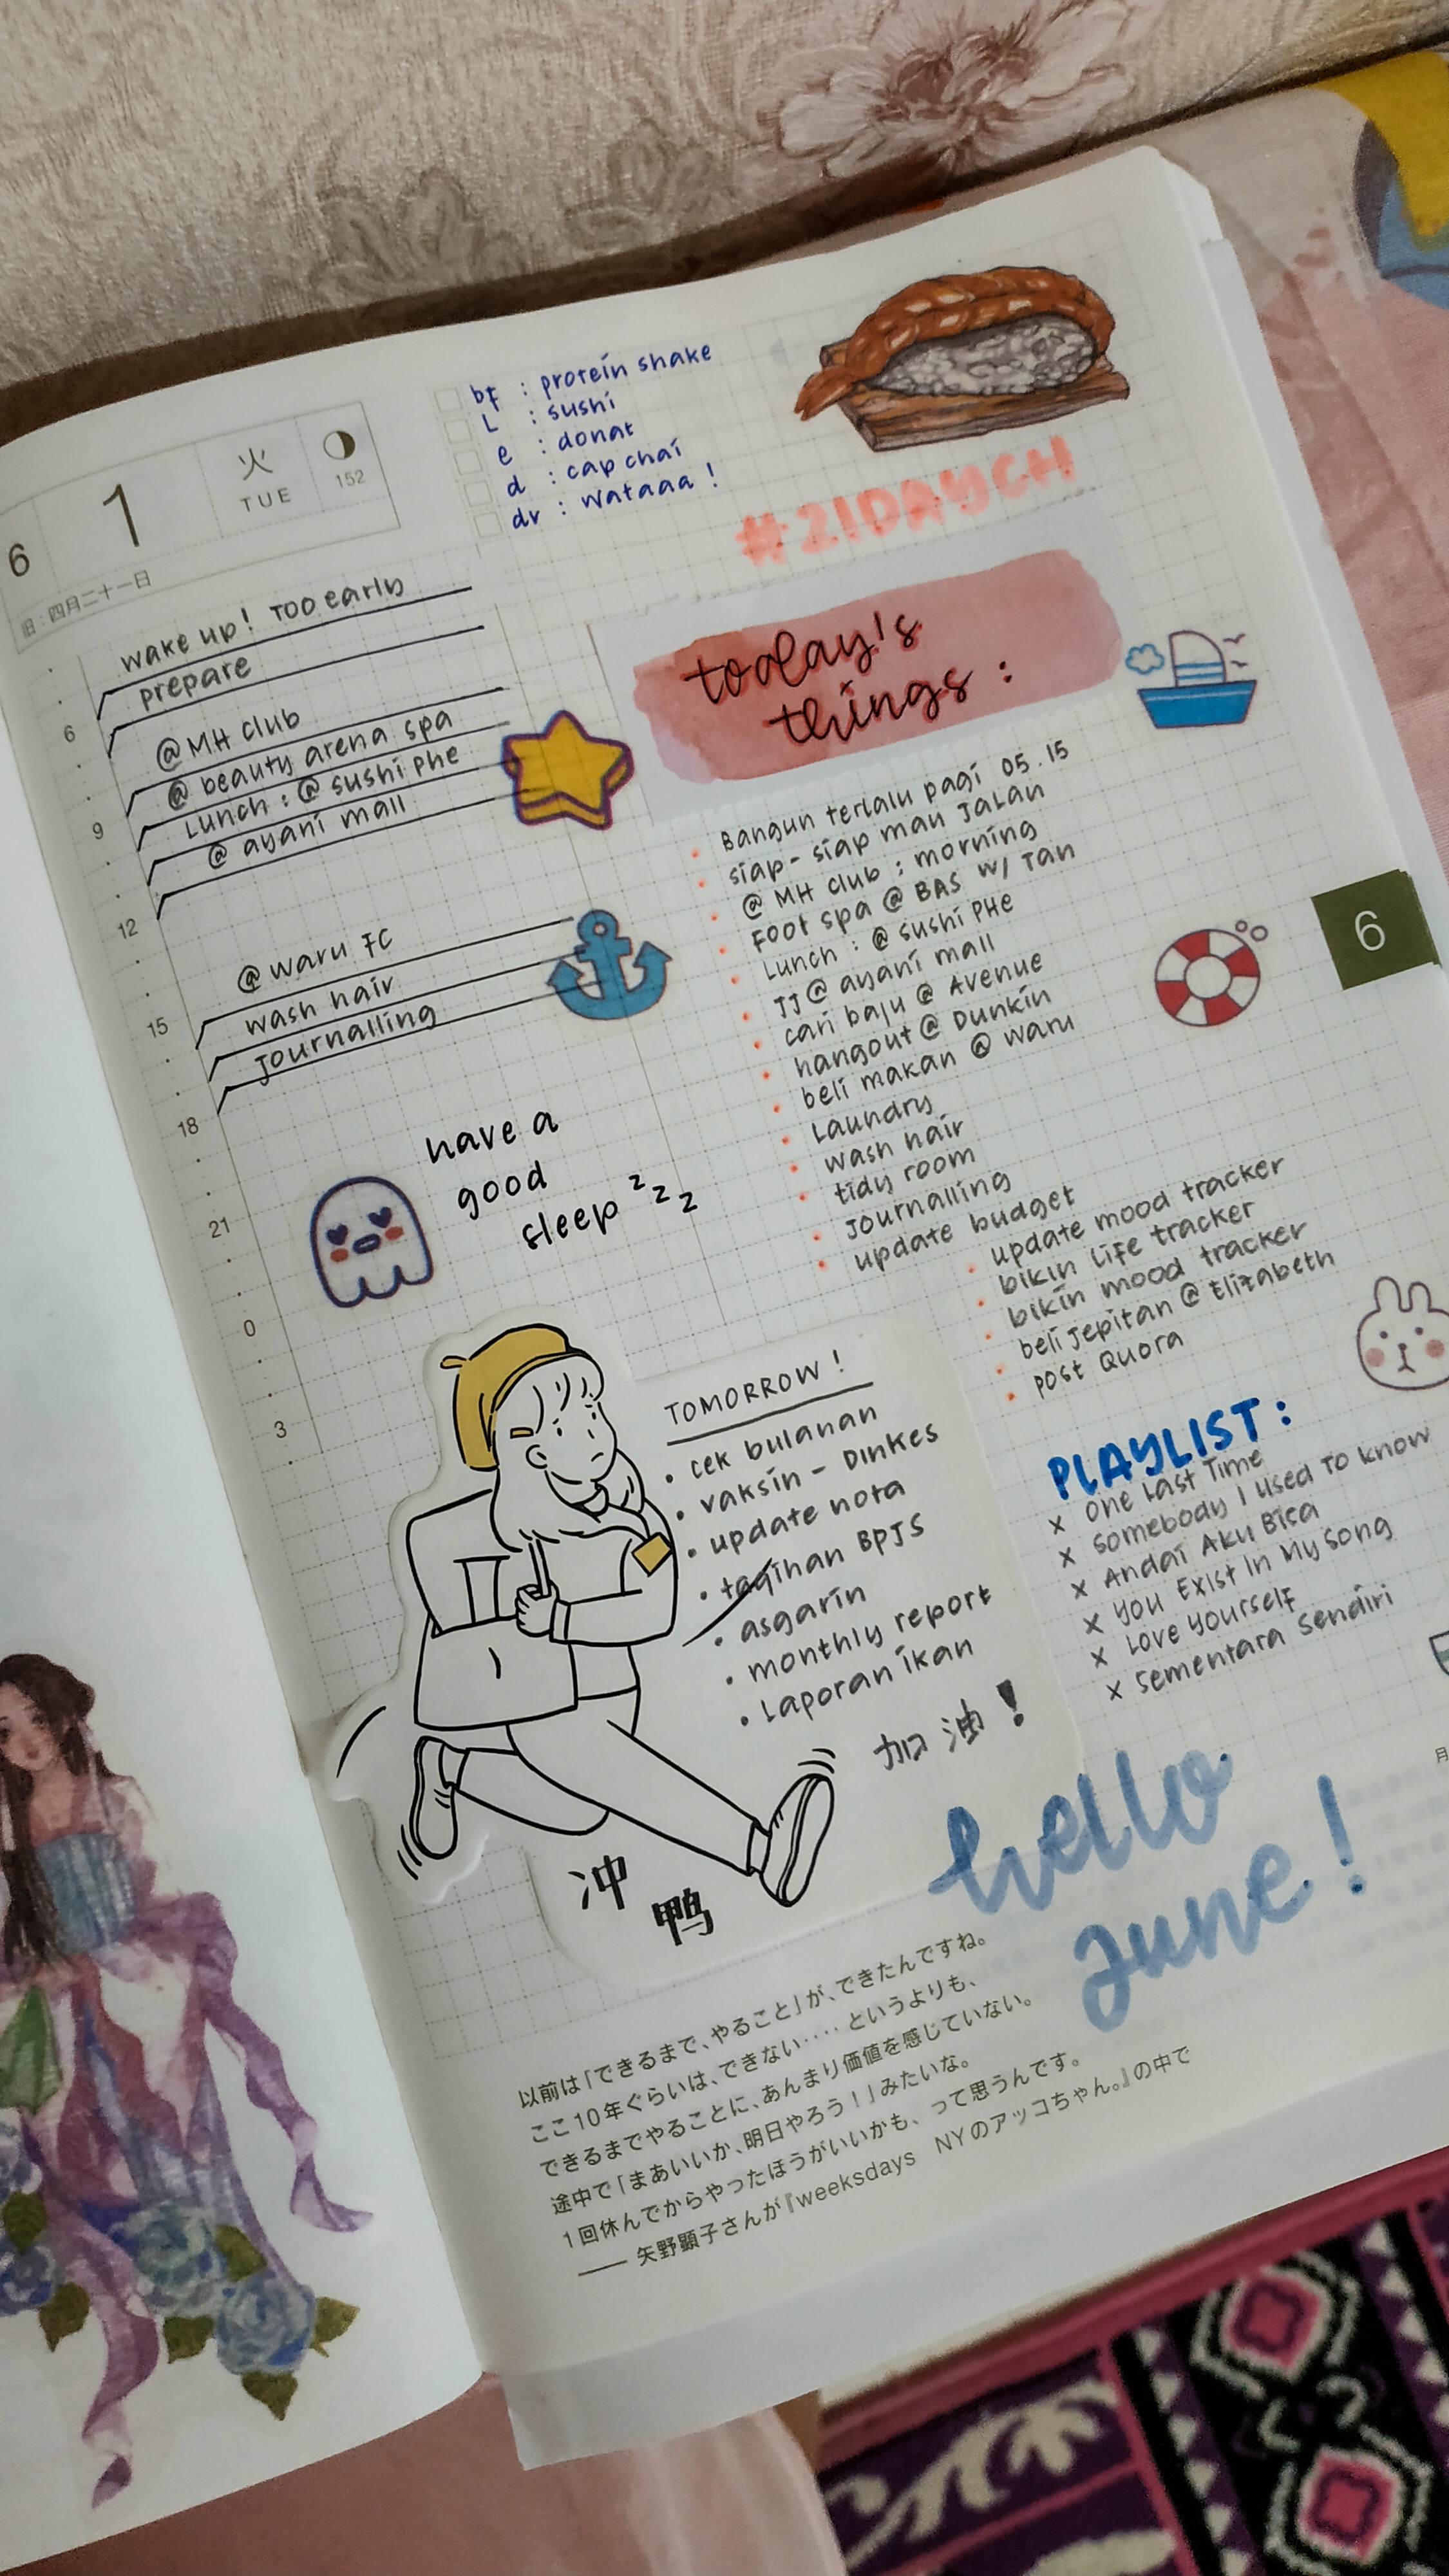 6
1
火
TUE
152
旧:四月二十一日
bf : protein shake
L : sushi
e : donat
d : cap chai
dr : wataaa !
#21DAYCH
wake up! Too early
prepare
@ MH club
@ beauty arena spa
Lunch : @ sushi phe
@ ayani mall
@ waru FC
wash hair
Journalling
6
9
12
15
18
21
0
3
have a
good
sleep z z z
today's
things :
Bangun terlalu pagi 05.15
siap-siap mau Jalan
@ MH club : morning
Foot spa @ BAS w/ Tan
Lunch : @ sushi PHe
JJ @ ayani mall
cari baju @ Avenue
hangout @ Dunkin
beli makan @ waru
Laundry
wash hair
tidy room
Journalling
update budget
update mood tracker
bikin life tracker
bikin mood tracker
beli Jepitan @ Elizabeth
post Quora
6
TOMORROW !
• cek bulanan
• vaksin - Dinkes
• update nota
• tagihan BPJS
• asgarin
• monthly report
• Laporan ikan
加油!
冲
鸭
PLAYLIST :
x One Last Time
x Somebody I Used To Know
x Andai Aku Bisa
x You Exist In My Song
x Love Yourself
x Sementara Sendiri
hello
June !
月
以前は「できるまで、やること」が、できたんですね。
ここ10年ぐらいは、できない‥‥というよりも、
できるまでやることに、あんまり価値を感じていない。
途中で「まあいいか、明日やろう!」みたいな。
1回休んでからやったほうがいいかも、って思うんです。
―― 矢野顕子さんが『weeksdays　NYのアッコちゃん。』の中で